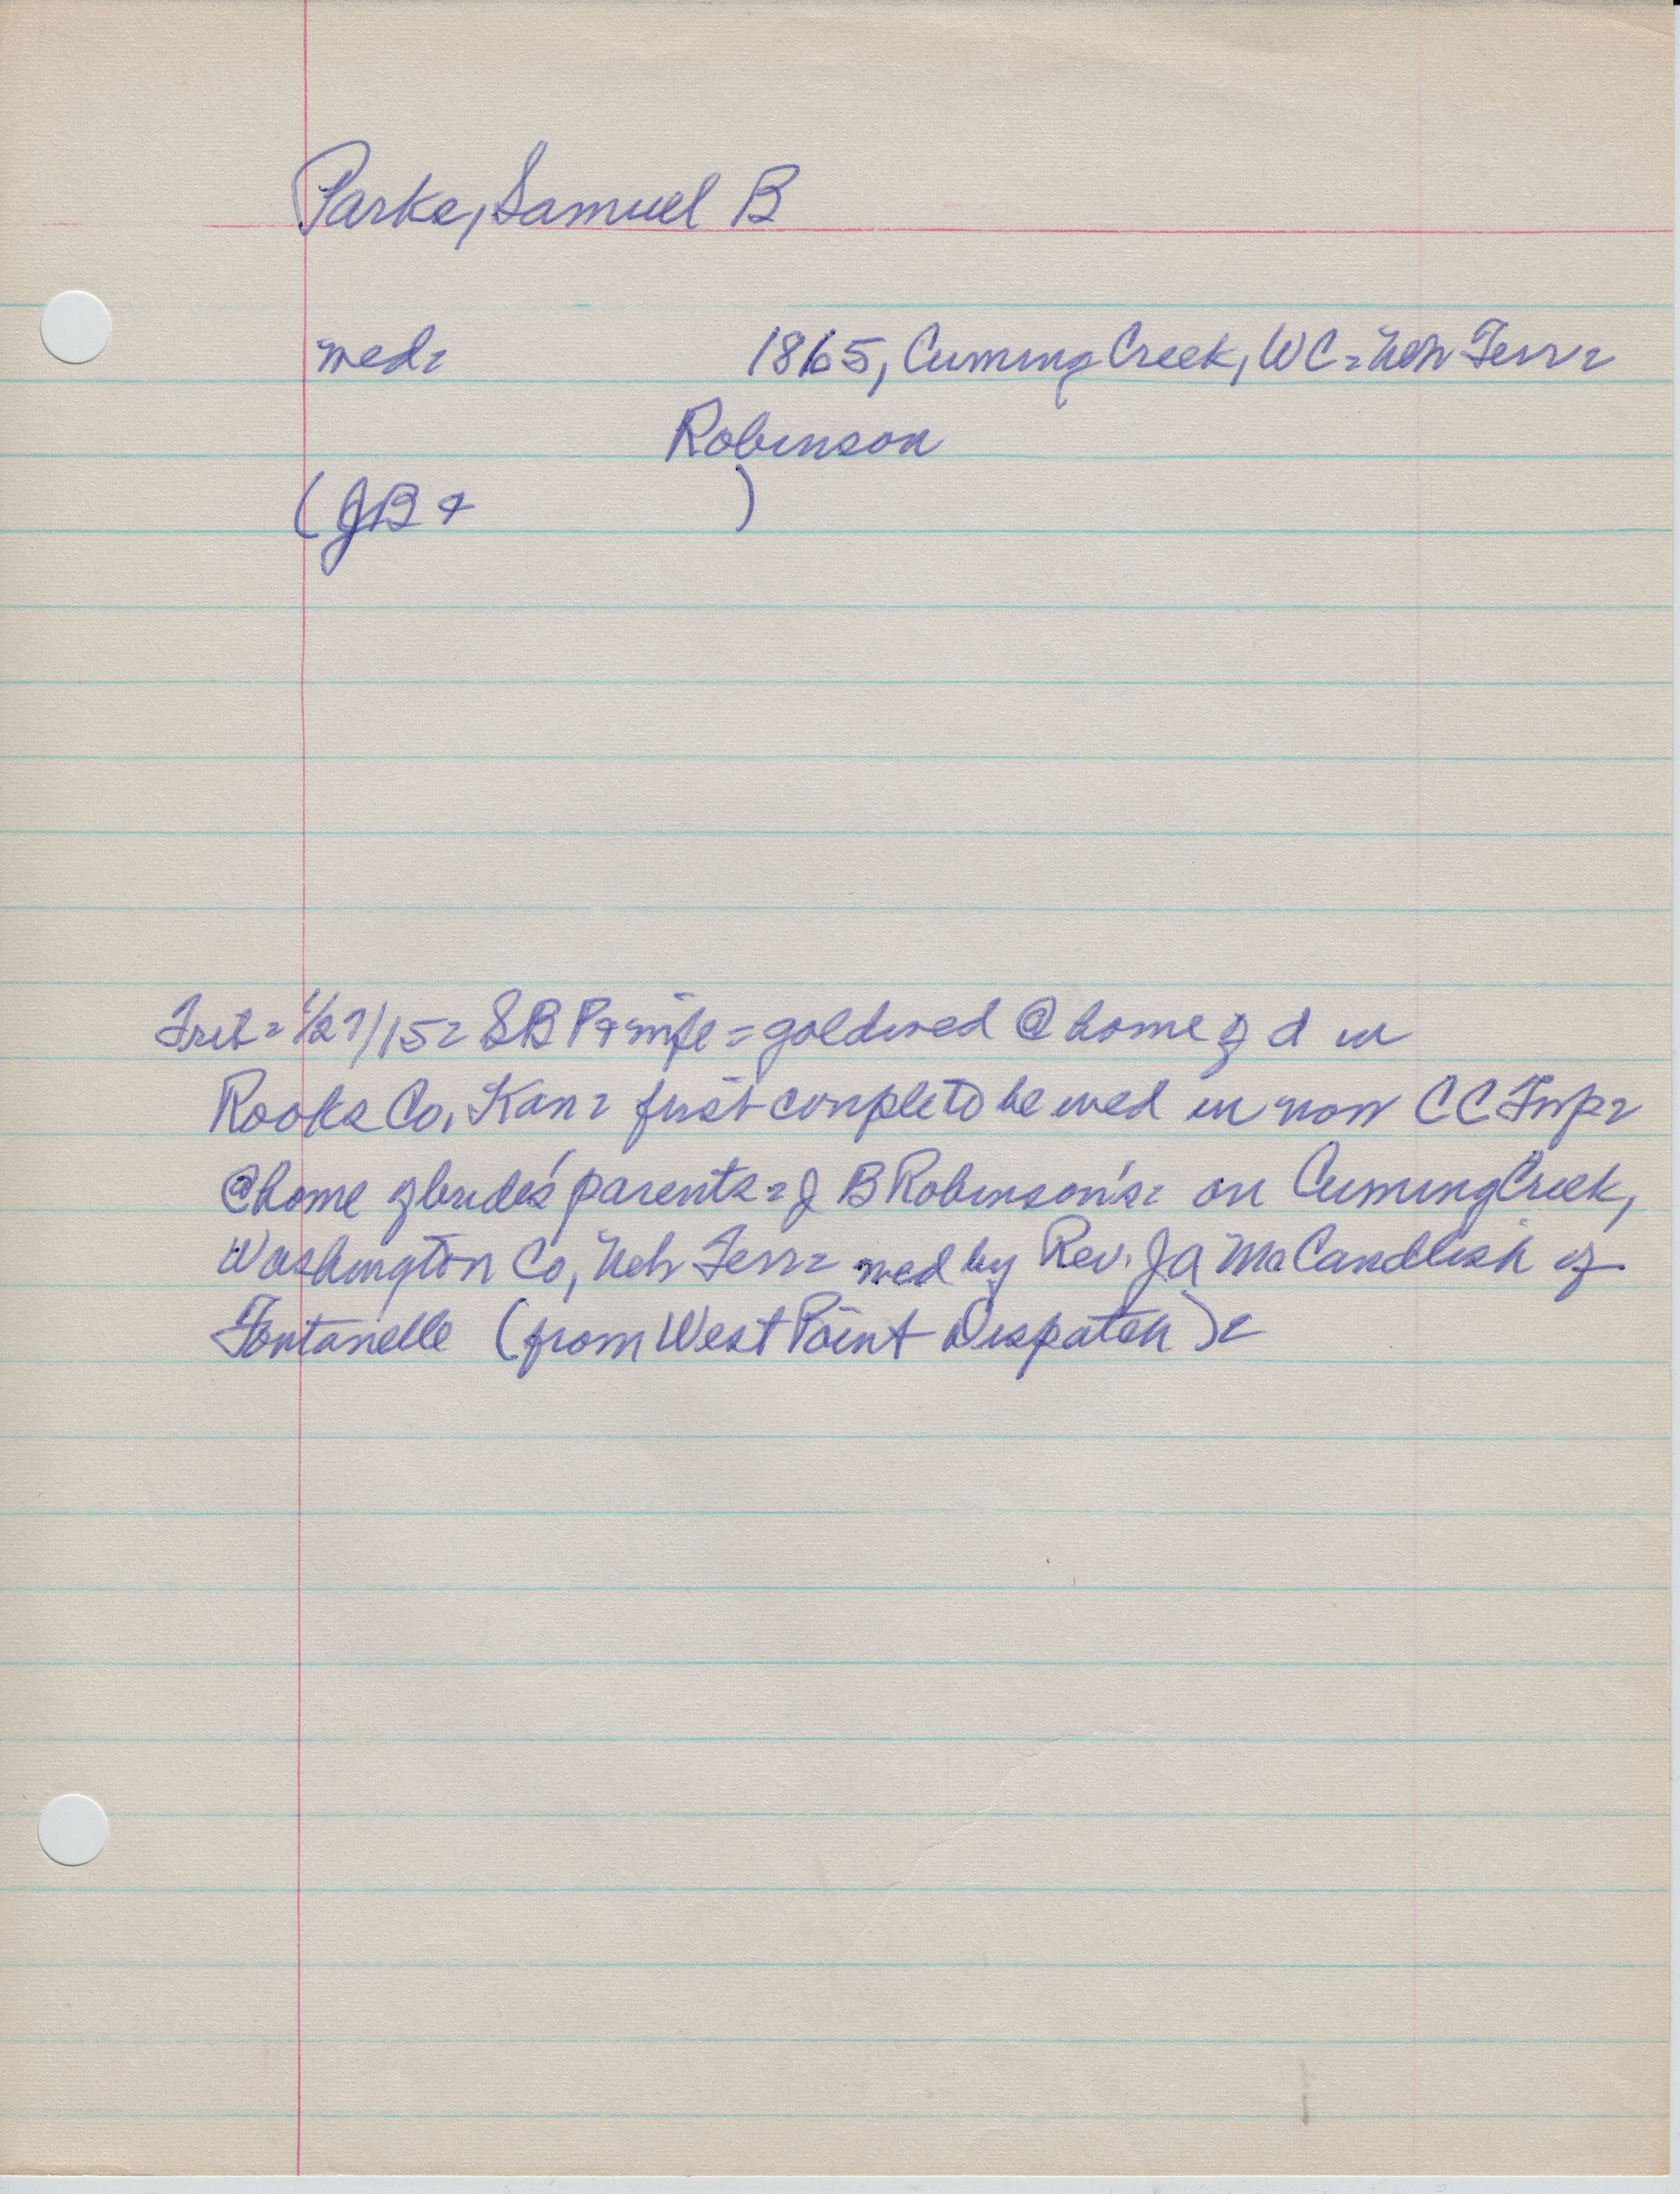 Parke, Samuel B
wed= 1865, Cuming Creek, WC= Neb Terr=
Robinson
(JB + )
Trib= 1/27/15= SB P + wife= goldwed @ home of d in
Rooks Co, Kan= first couple to be wed in now CC Twp=
@ home of bride's parents= J B Robinson's= on Cuming Creek,
Washington Co, Neb Terr= wed by Rev. JA McCandlish of
Fontanelle (from West Point Dispatch)=